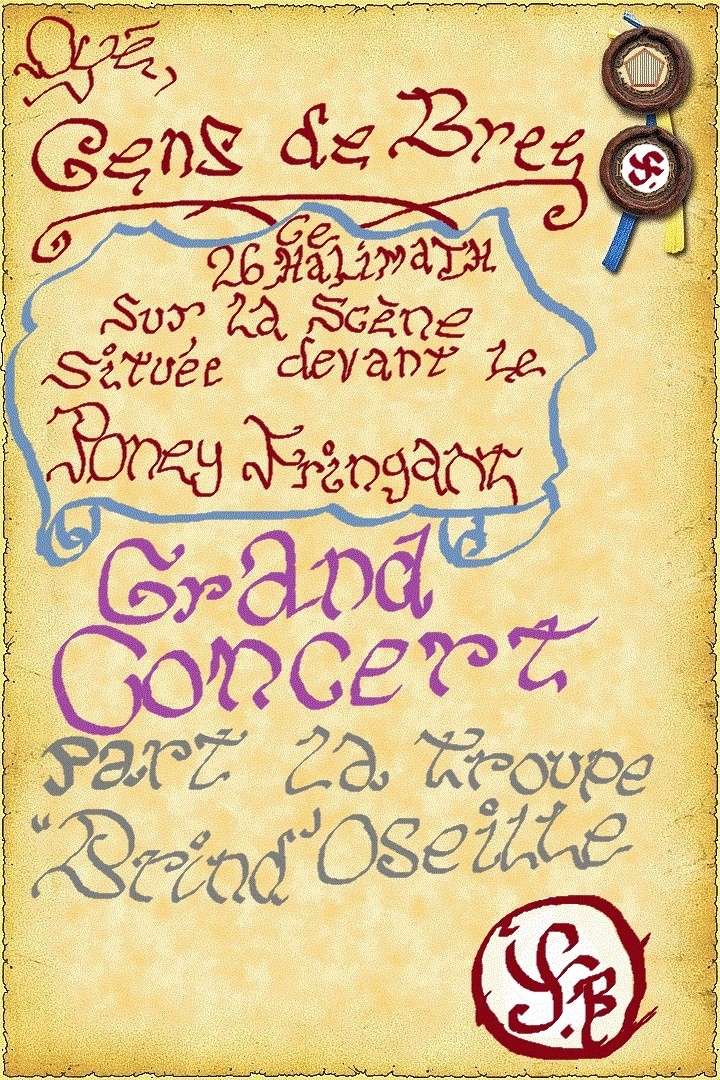 Oyé,
Gens de Bree
Ce
26 Halimath
Sur la Scène
Située devant le
Poney Fringant
Grand
Concert
part la troupe
"Brind'Oseille
S.B